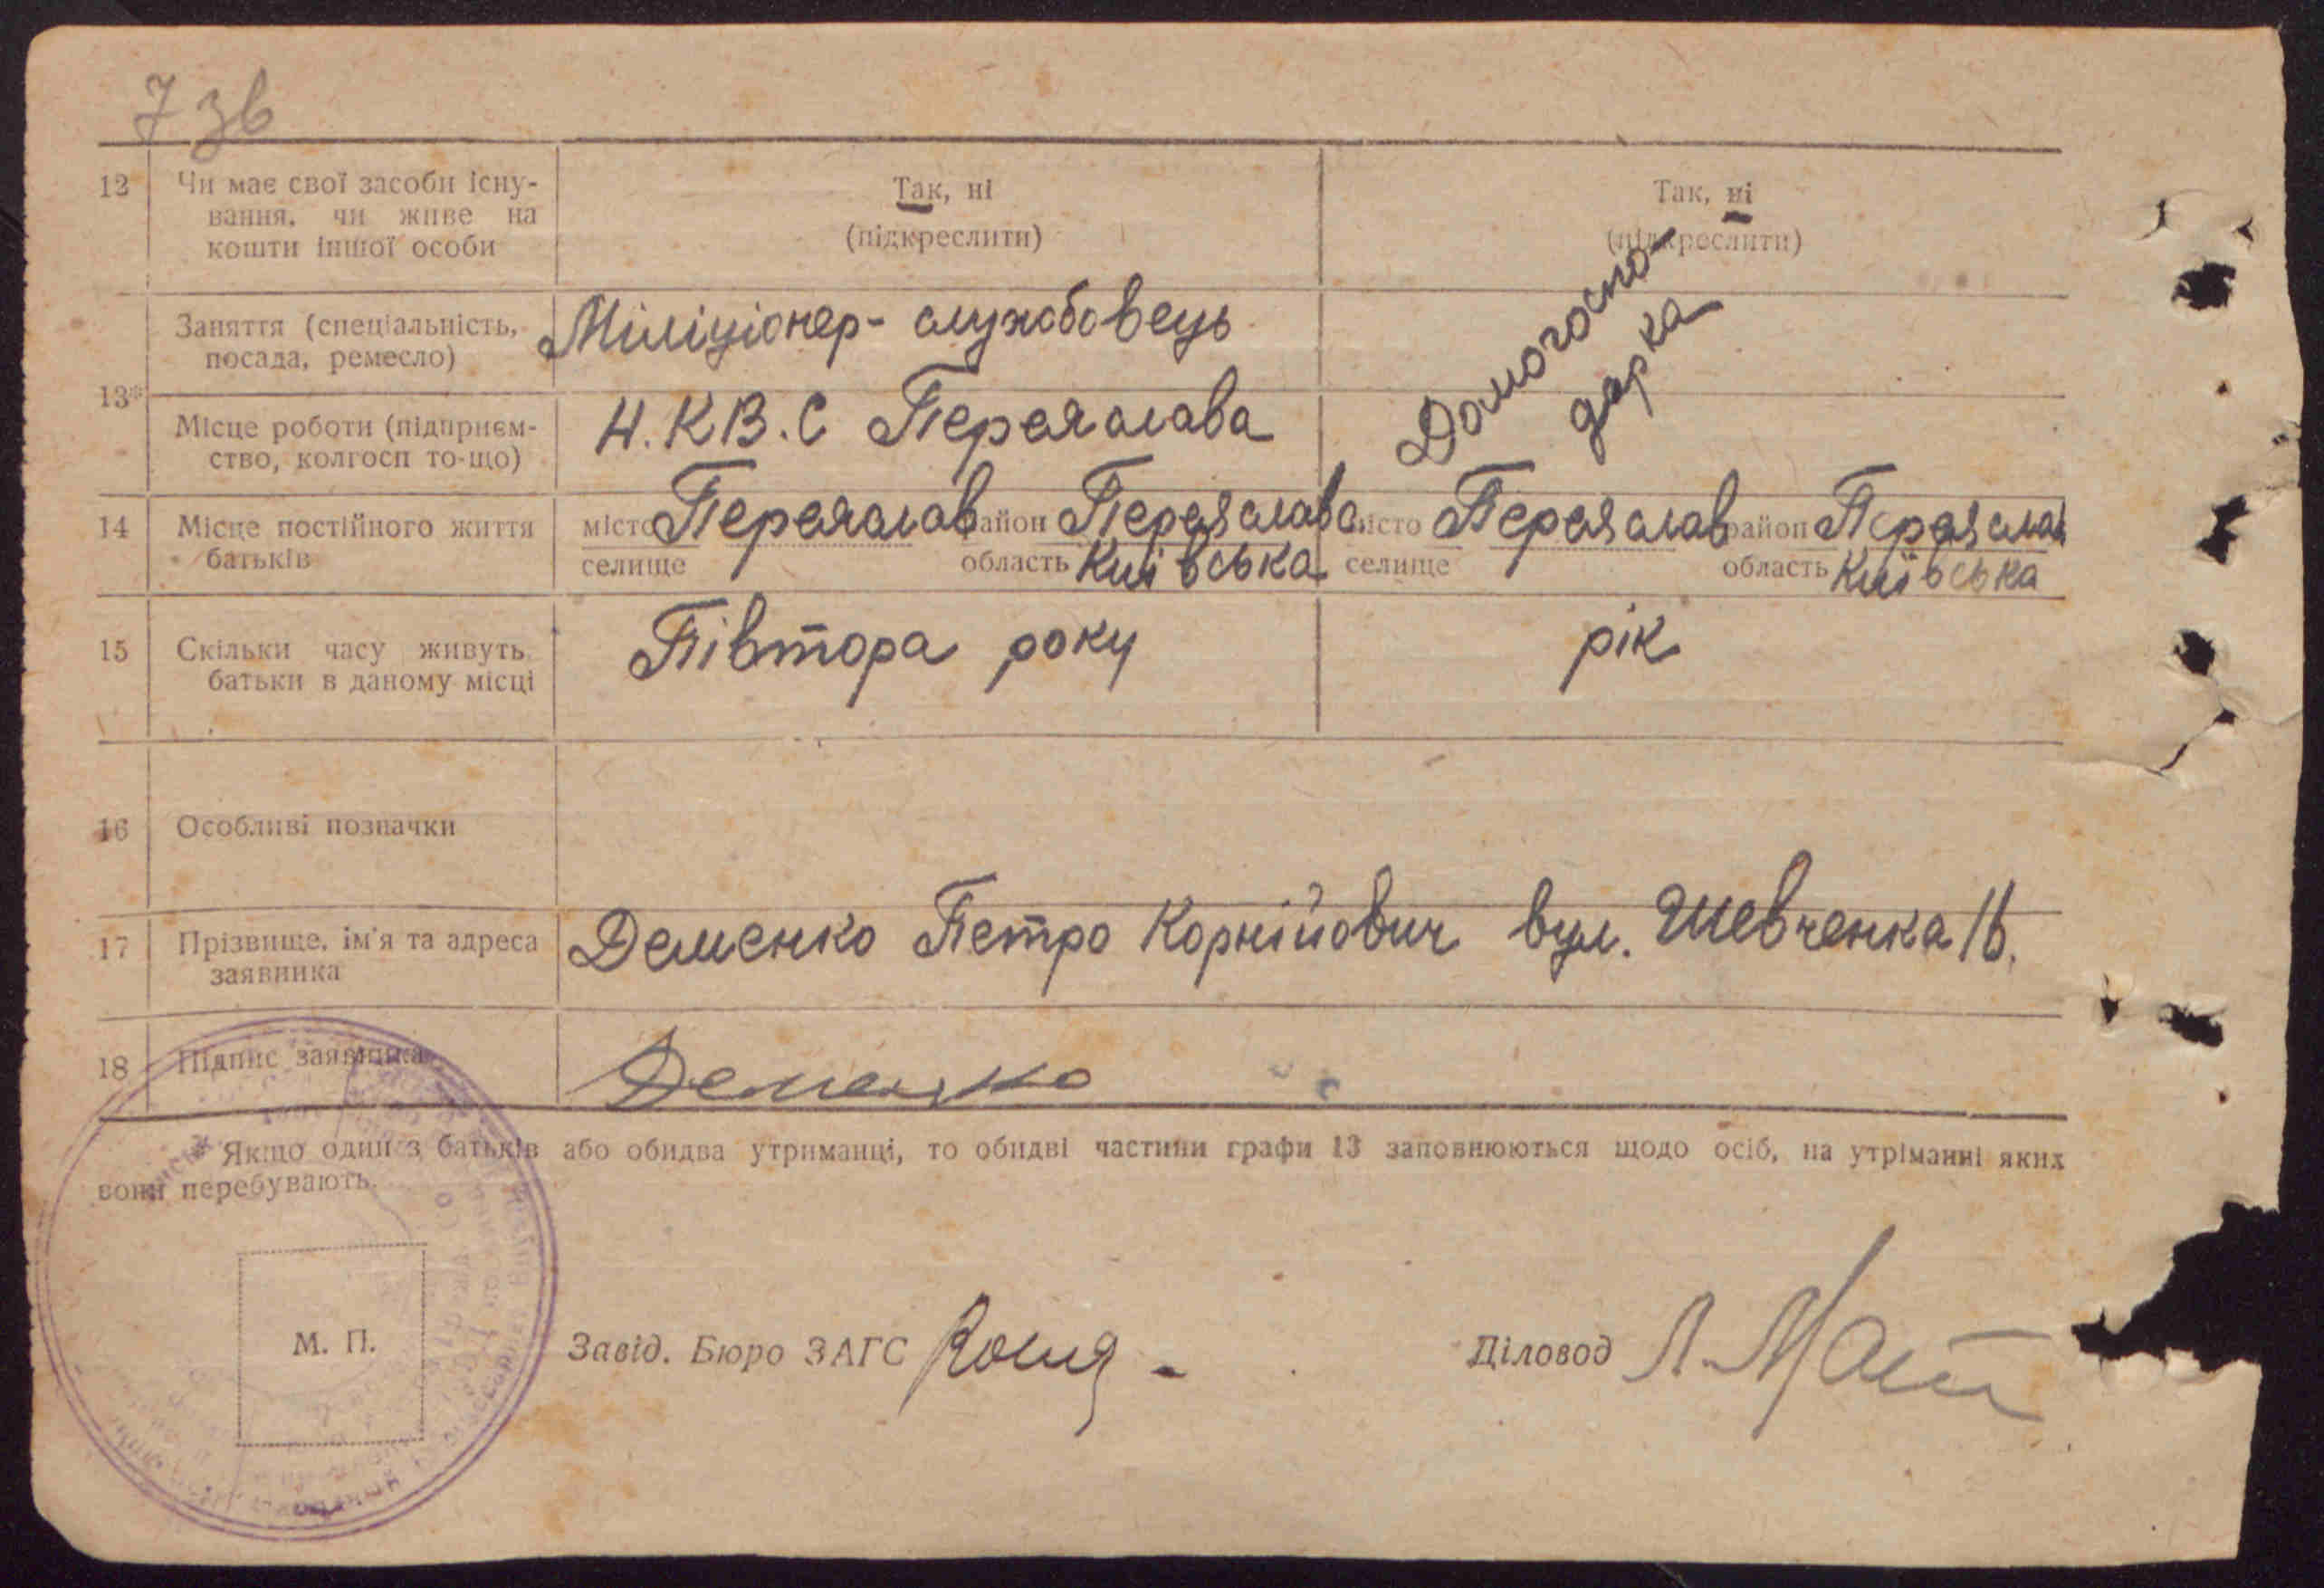 7 зв
12 Чи має свої засоби існу-
вання, чи живе на
кошти іншої особи
Так, ні
(підкреслити)
Так, ні
(підкреслити)
13*
Заняття (спеціальність,
посада, ремесло)
Міліціонер-службовець
Домогоспо-
дарка
Місце роботи (підприєм-
ство, колгосп то-що)
Н.КВ.С Переяслава
14 Місце постійного життя
батьків
місто Переяслав район Переяслава
селище область Київська
місто Переяслав район Переяслав
селище область Київська
15 Скільки часу живуть
батьки в даному місці
Півтора року
рік
16 Особливі позначки
17 Прізвище, ім'я та адреса
заявника
Деменко Петро Корнійович вул. Шевченка
18 Підпис заявника
Деменко
Якщо один з батьків або обидва утриманці, то обидві частини графи 13 заповнюються щодо осіб, на утріманні яких
вони перебувають.
М. П.
Завід. Бюро ЗАГС
Діловод